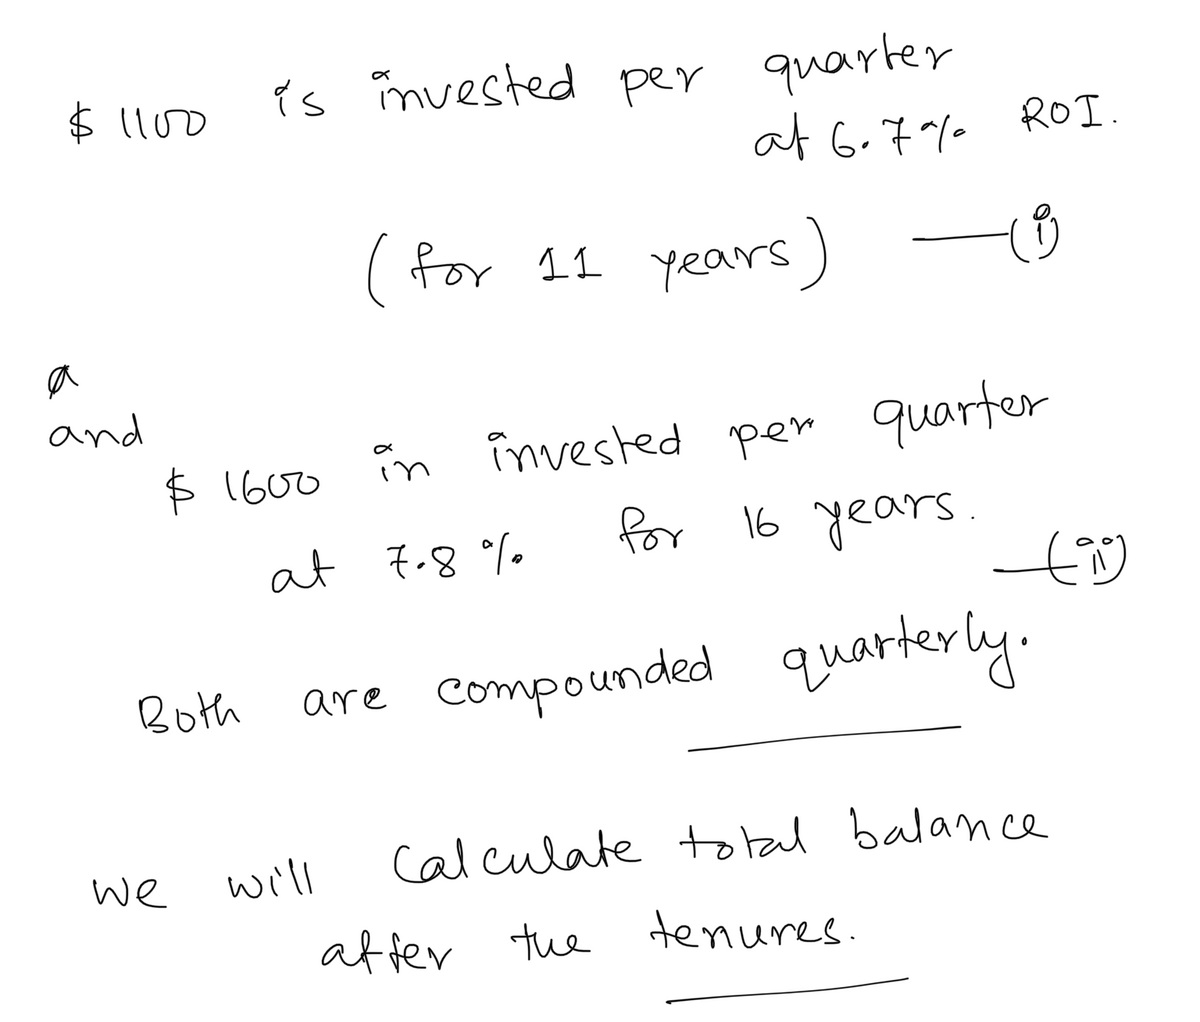 $ 1100 is invested per quarter
at 6.7% ROI.
(for 11 years) —(i)
a
and
$ 1600 in invested per quarter
at 7.8 % for 16 years.
—(ii)
Both are compounded quarterly.
we will Calculate total balance
after the tenures.